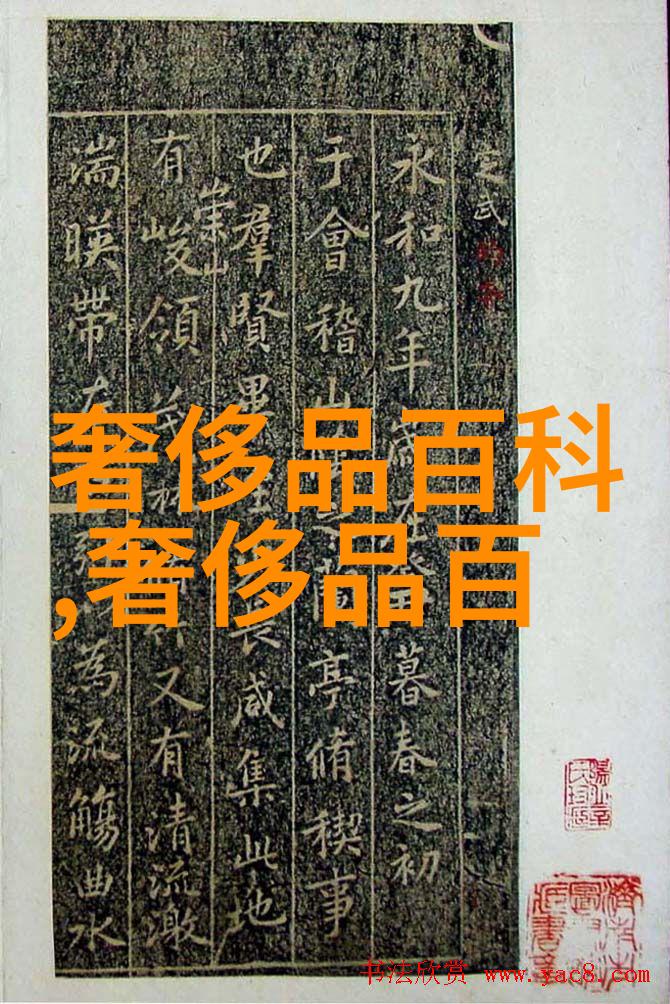 奢侈品百科
,奢侈品百
定武
永和九年歲在暮春之初
于會稽山亭脩稧事
也羣賢畢長咸集此地
有崇山峻領茂林又有清流激
湍暎帶左為流觴曲水
书法欣赏 www.yac8.com